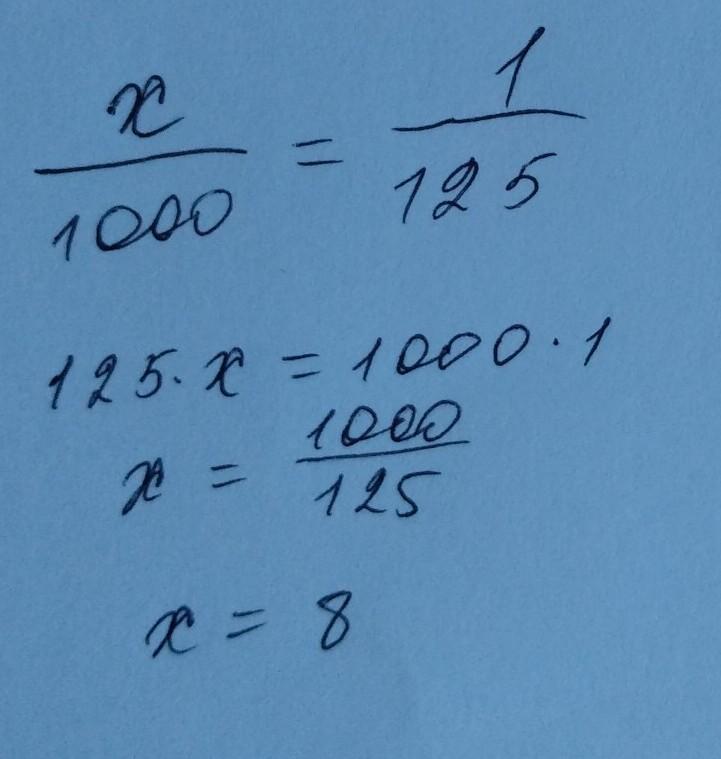 x/1000 = 1/125
125·x = 1000·1
x = 1000/125
x = 8